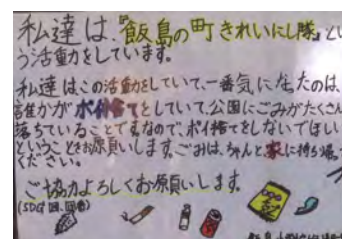 私達は、『飯島の町きれいにし隊』とい
う活動をしています。
私達はこの活動をしていて、一番気になたのは、
誰かがポイ捨てをしていて、公園にごみがたくさん
落ちていることです。なので、ポイ捨てをしないでほしい
ということをお願いします。ごみは、ちゃんと家に持ち帰って
ください。
ご協力よろしくお願いします。